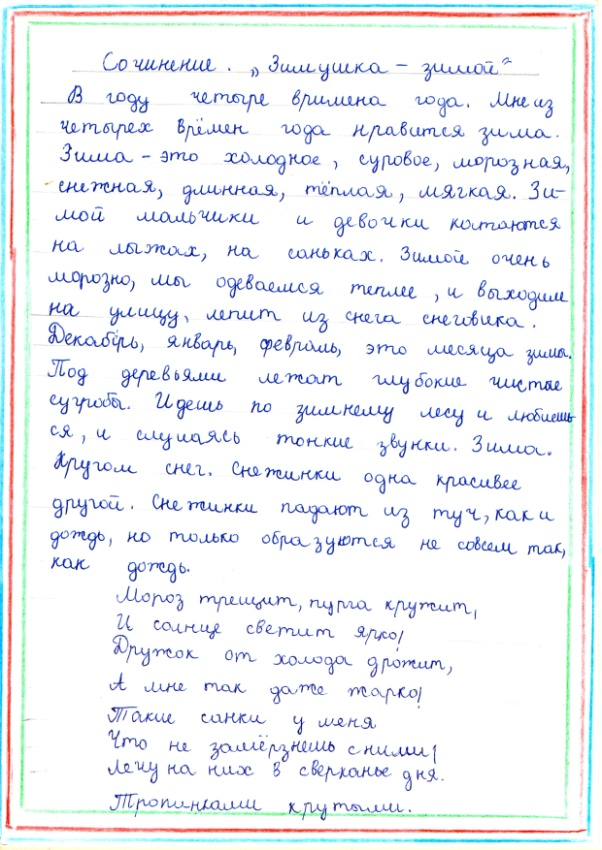 Сочинение. „Зимушка – зимой"
В году четыре времена года. Мне из
четырех врёмен года нравится зима.
Зима – это холодное, суровое, морозная,
снежная, длинная, тёплая, мягкая. Зи-
мой мальчики и девочки катаются
на лыжах, на саньках. Зимой очень
морозно, мы одеваемся теплее, и выходим
на улицу, лепит из снега снеговика.
Декабірь, январь, февраль, это месяца зимы.
Под деревьями лежат глубокие чистые
сугробы. Идешь по зимнему лесу и любиешь
ся, и слушаясь тонкие звунки. Зима.
Кругом снег. Снежинки одна красивее
другой. Снежинки падают из туч, как и
дождь, но только образуются не совсем так,
как дождь.
Мороз трещит, пурга кружит,
И солнце светит ярко!
Дружок от холода дрожит,
А мне так даже жарко!
Такие санки у меня
Что не замёрзнешь с ними!
Лечу на них в сверканье дня.
Тропинками крутыми.